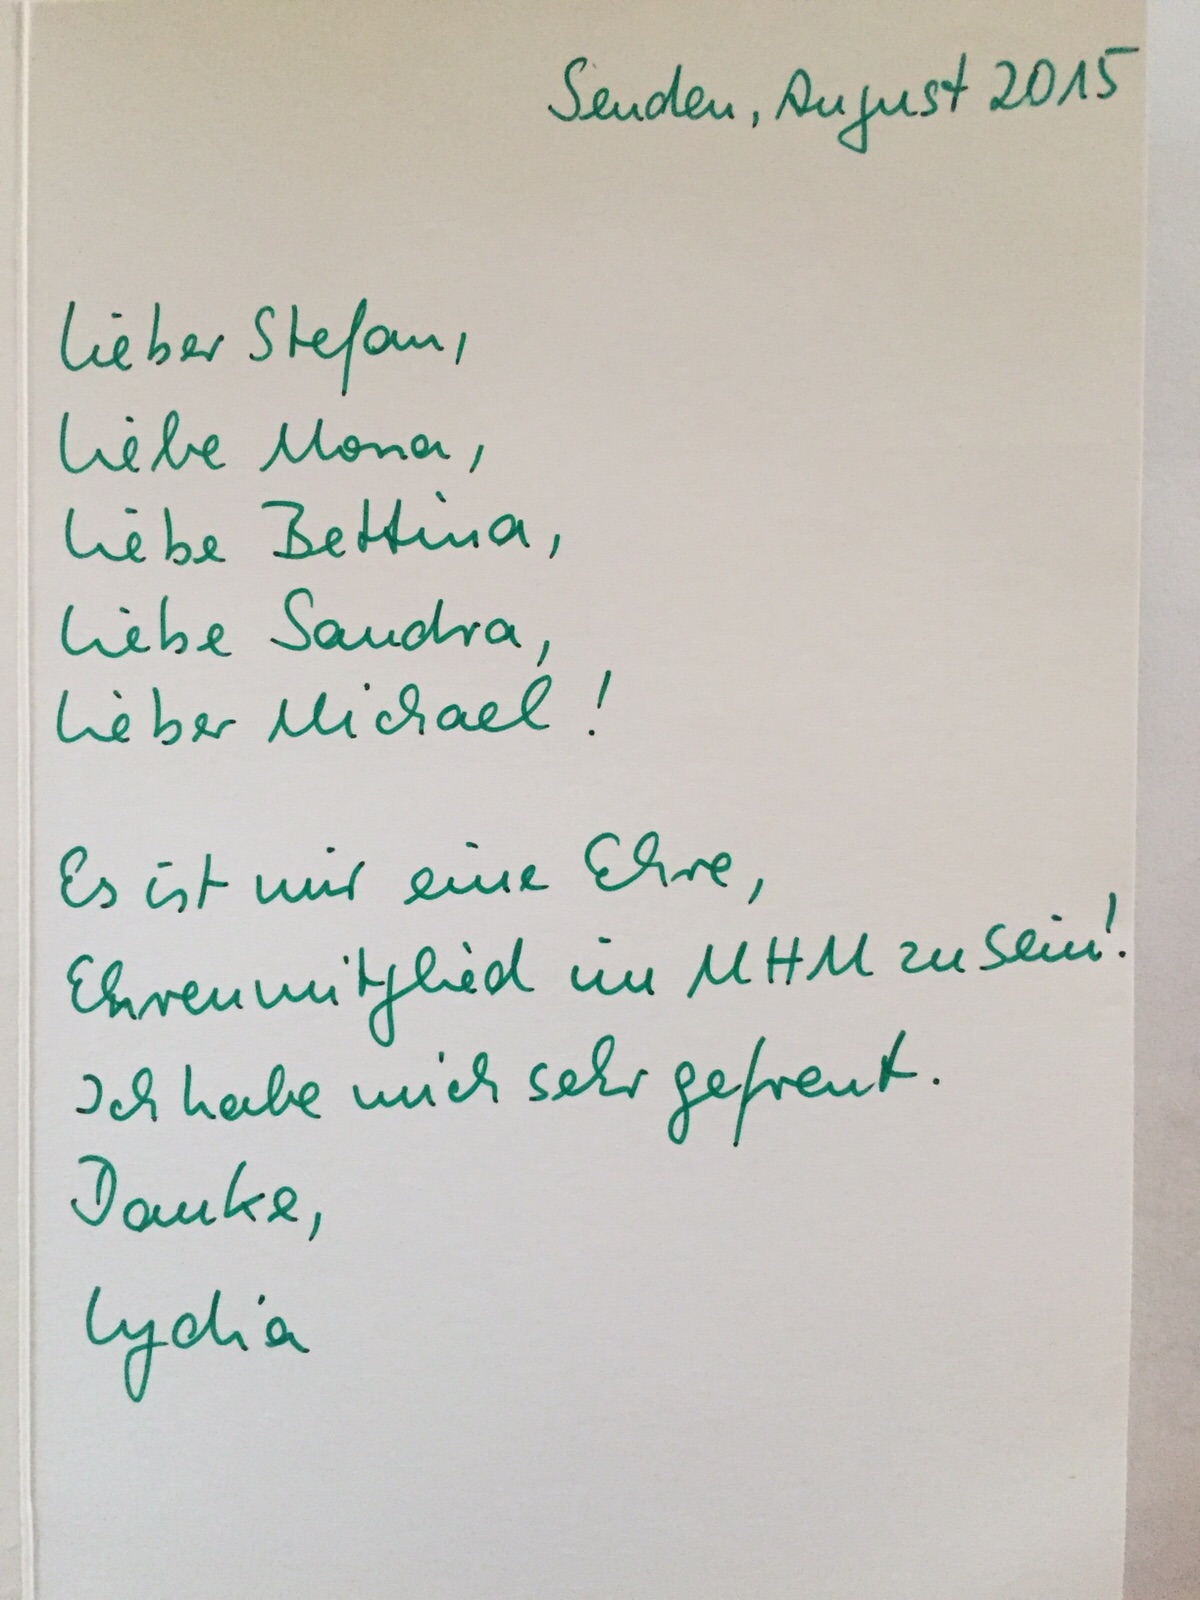 Senden, August 2015
Lieber Stefan,
Liebe Mona,
Liebe Bettina,
Liebe Sandra,
Lieber Michael!
Es ist mir eine Ehre,
Ehrenmitglied im MHM zu sein!
Ich habe mich sehr gefreut.
Danke,
Lydia